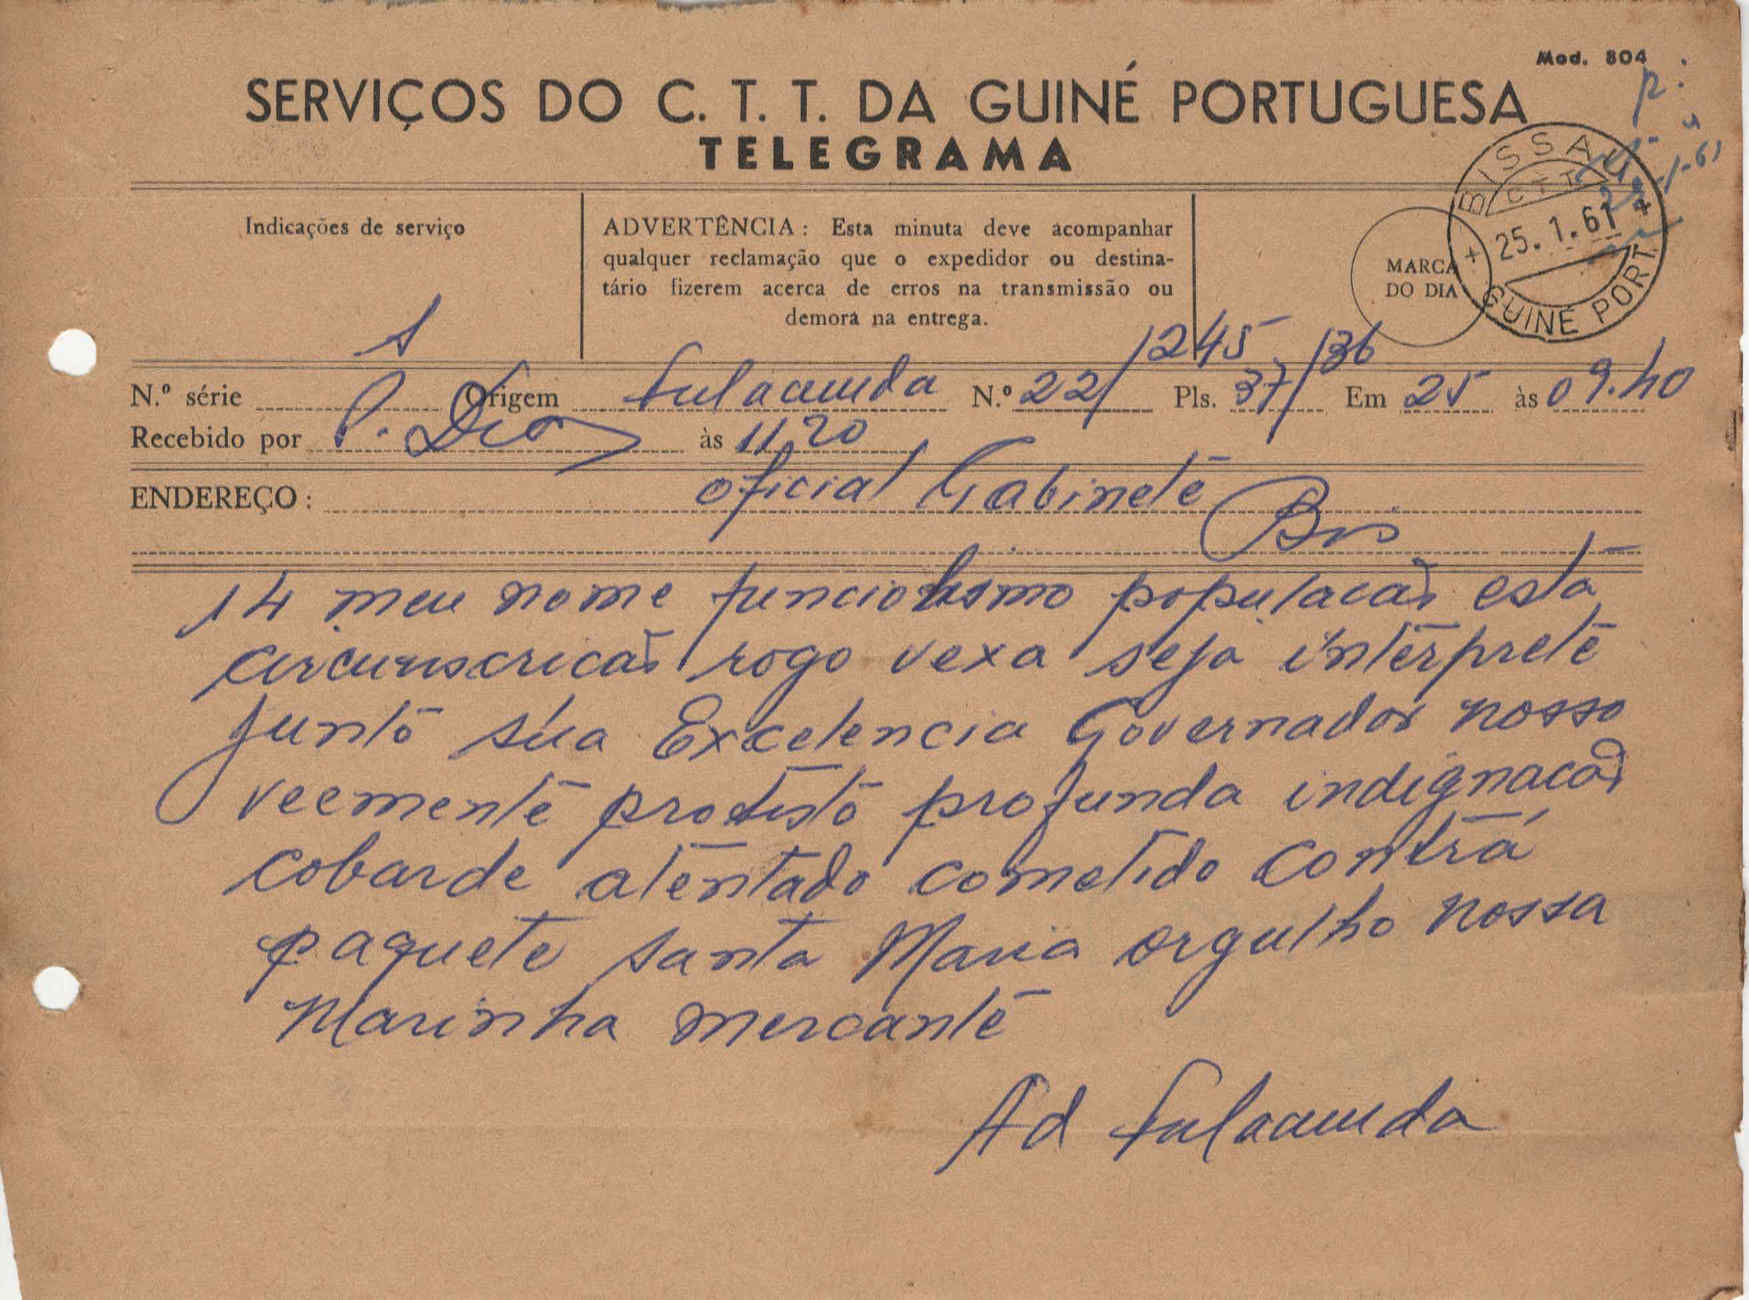 Mod. 804
SERVIÇOS DO C. T. T. DA GUINÉ PORTUGUESA
TELEGRAMA
Indicações de serviço
ADVERTÊNCIA: Esta minuta deve acompanhar
qualquer reclamação que o expedidor ou destina-
tário fizerem acerca de erros na transmissão ou
demora na entrega.
MARCA
DO DIA
BISSAU
CTT
25.1.61
GUINÉ PORT.
S
1245
N.º série Origem Fulacunda N.º 22/ Pls. 37/36 Em 25 às 09.40
Recebido por P. Dias às 11,20
ENDEREÇO: oficial Gabinete
Bis
14 meu nome funcionismo populacao esta
circunscricao rogo vexa seja interprete
junto sua Excelencia Governador nosso
veemente protesto profunda indignacao
cobarde atentado cometido contra
paquete santa Maria orgulho nossa
Marinha mercante
Ad Fulacunda